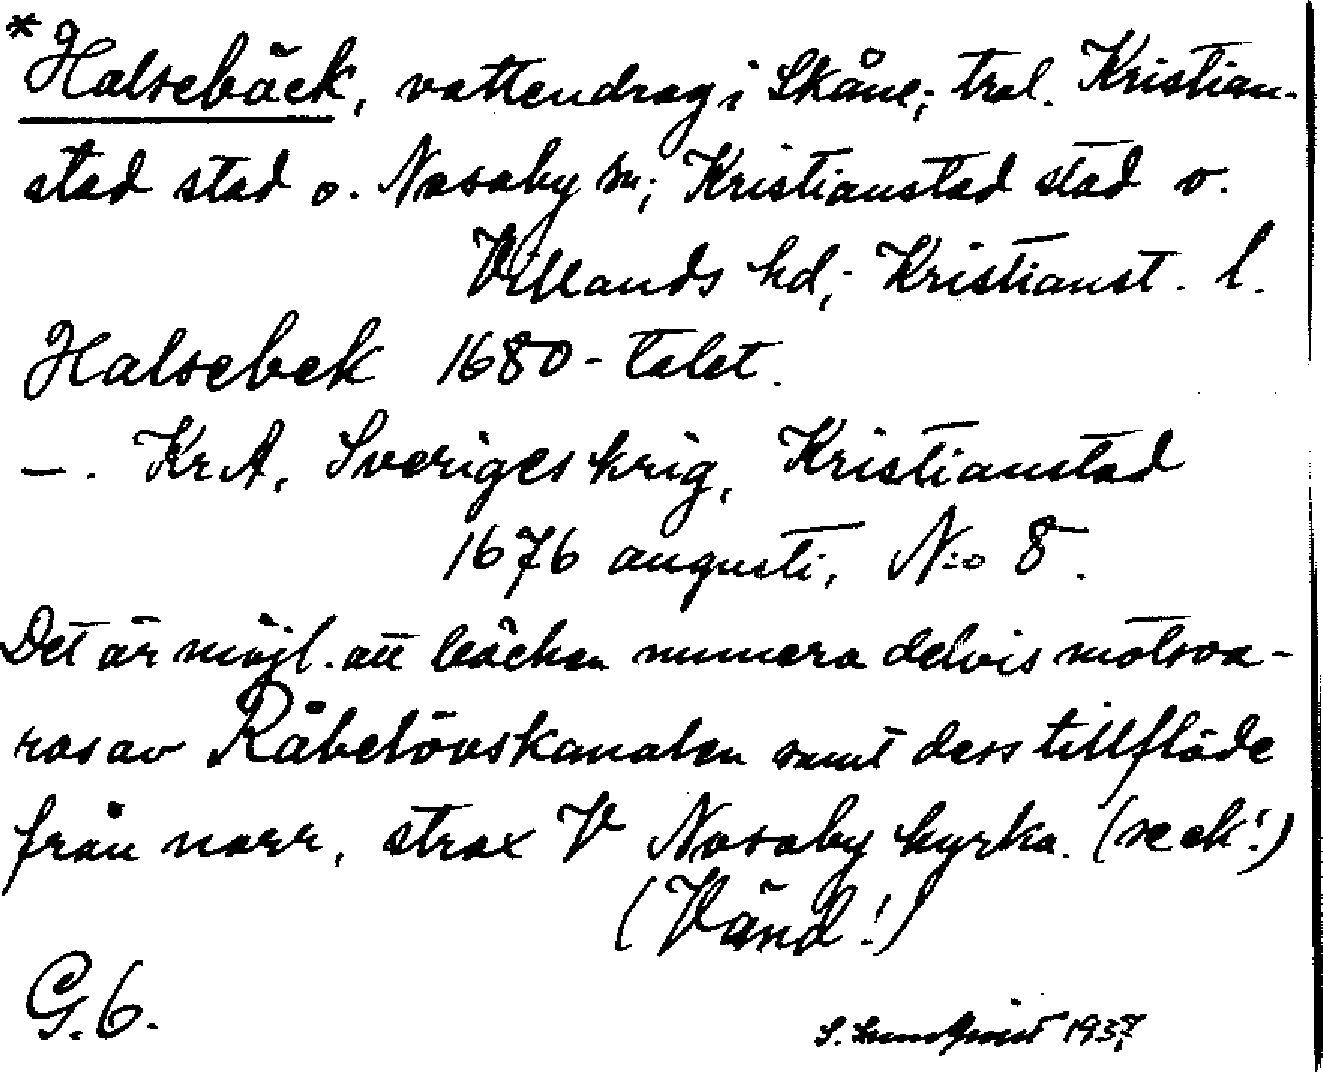 *Halsebäck, vattendrag i Skåne; trol. Kristian-
stad stad o. Nosaby sn; Kristianstad stad o.
Villands hd; Kristianst. l.
Halsebek 1680-talet.
—. KrA, Sveriges krig, Kristianstad
1676 augusti, N:o 8.
Det är möjl. att bäcken numera delvis motsva-
ras av Råbelövskanalen samt dess tillflöde
från norr, strax V Nosaby kyrka. (se ek!)
(Vänd!)
G.6.
S. Lundqvist 1937